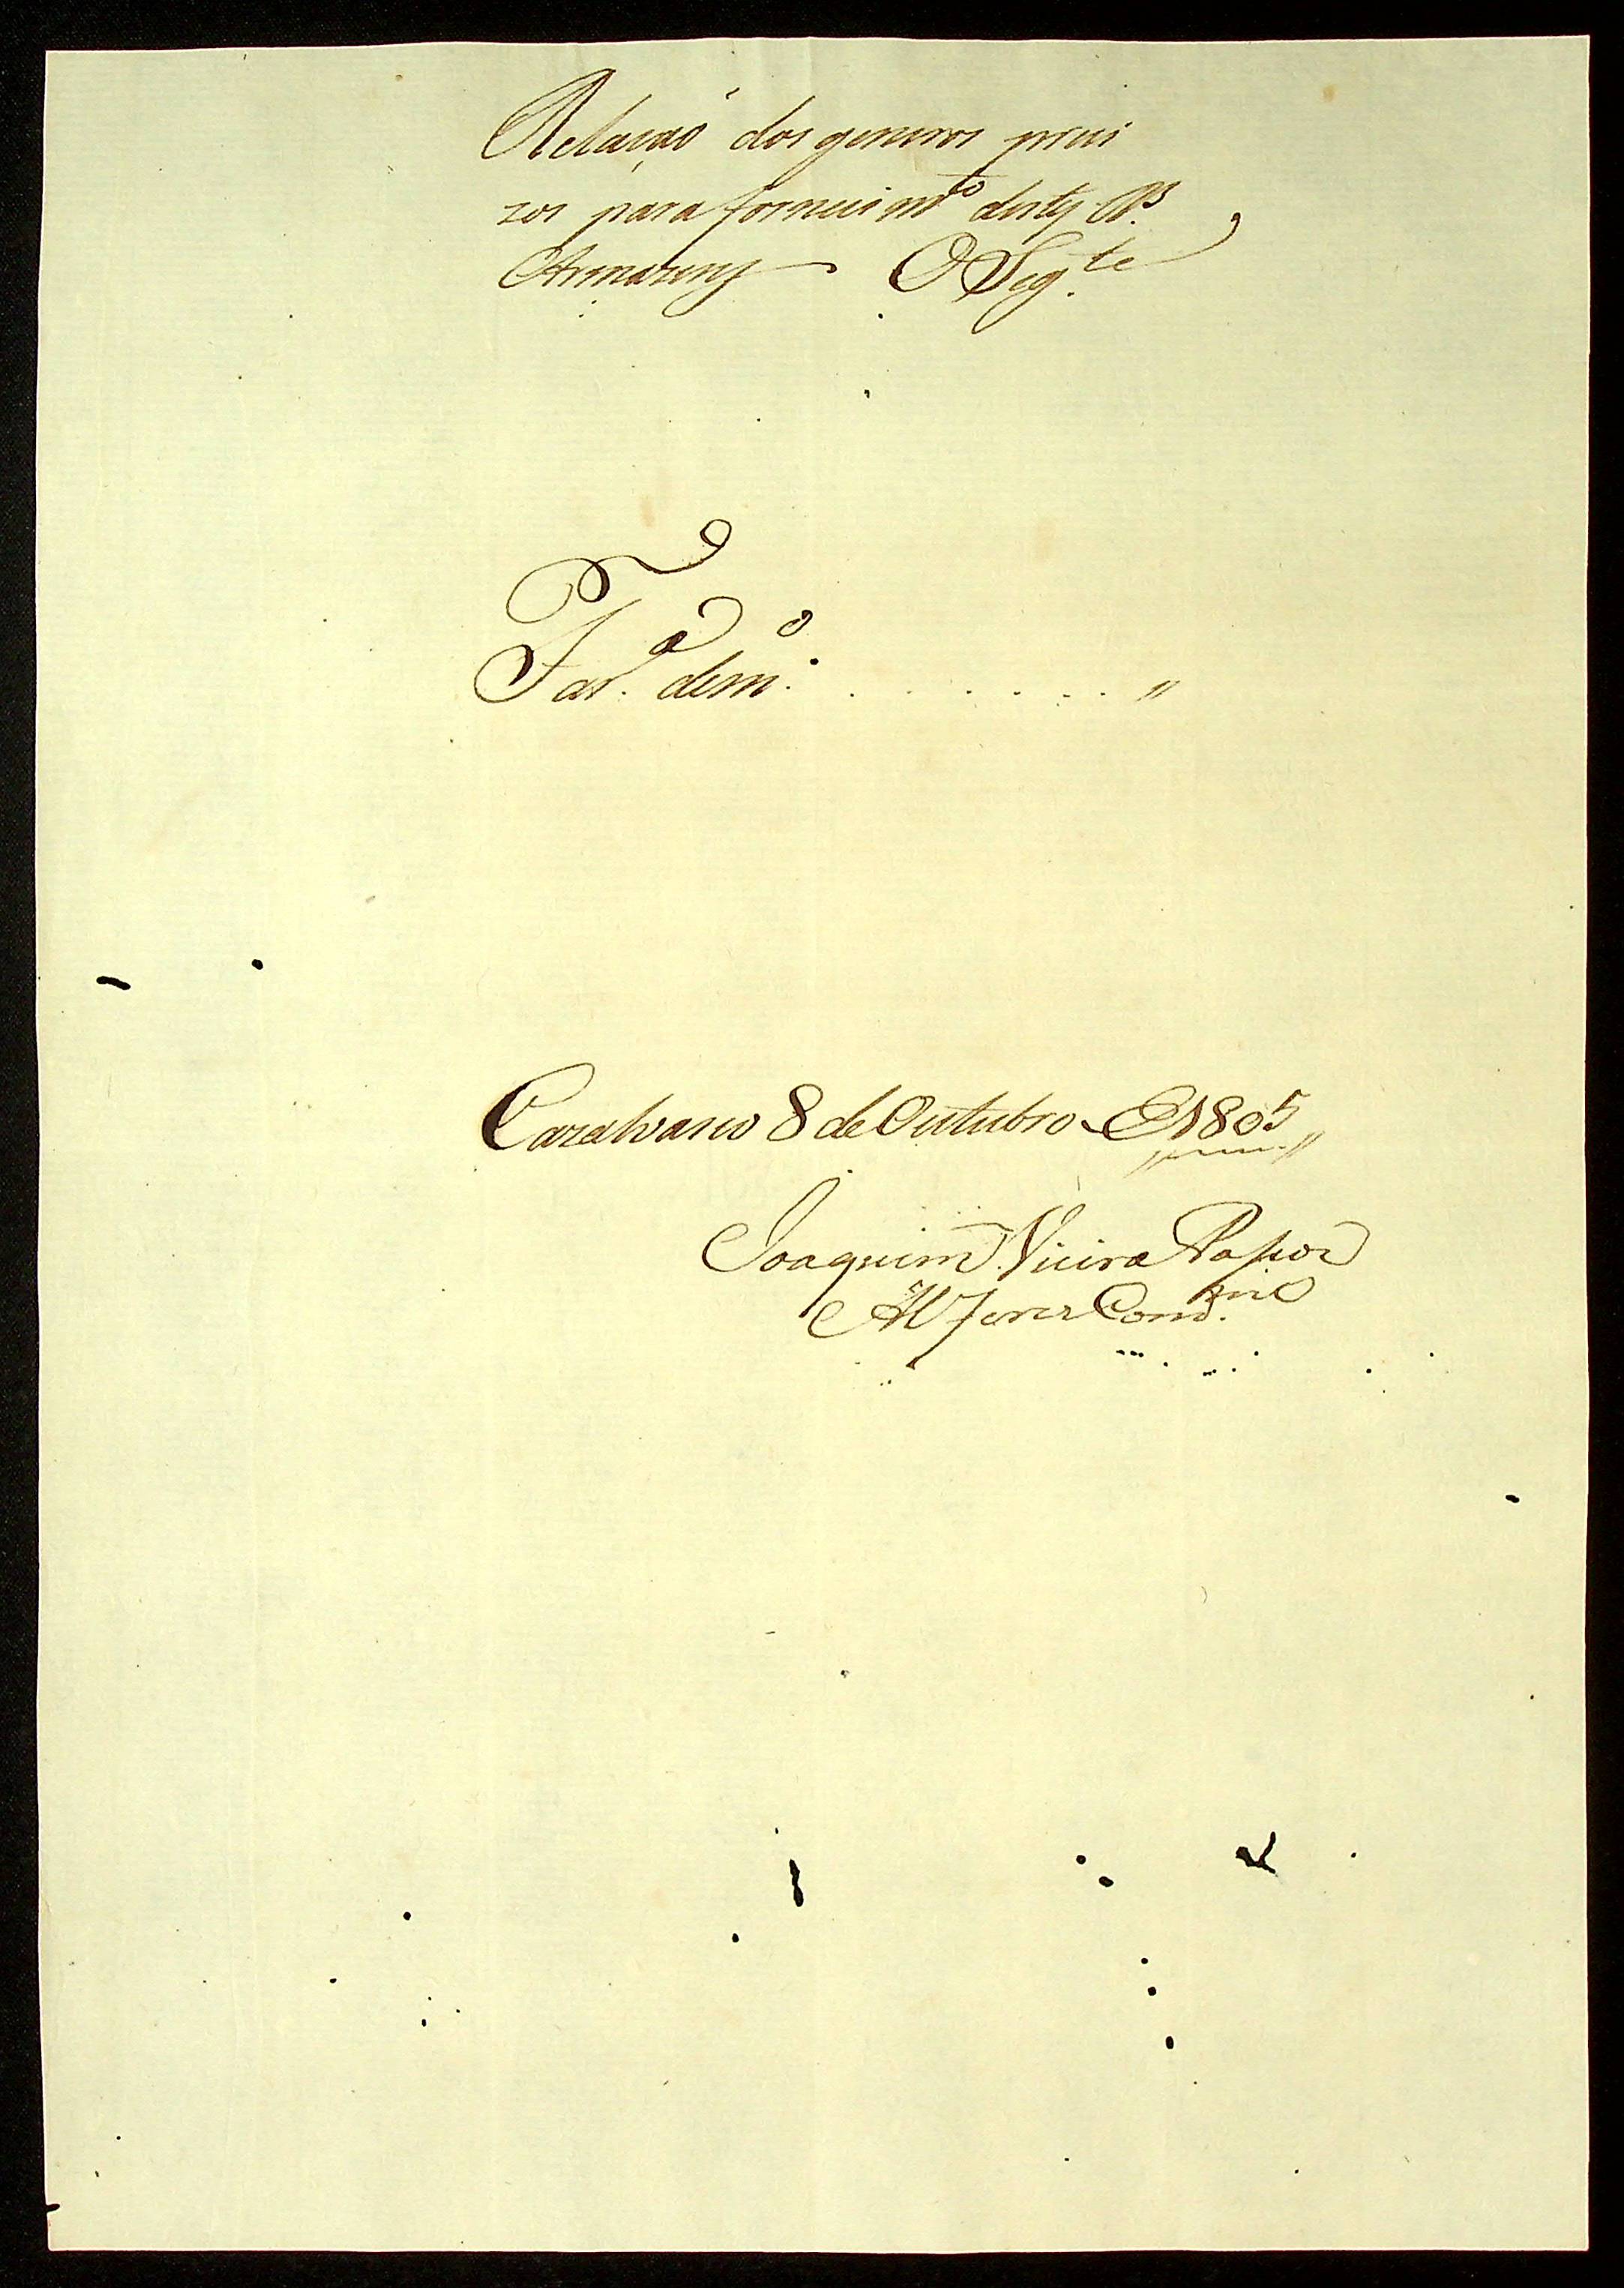 Relação dos generos preci
zos para fornecim.to destes R.s
Armazens O Seg.te
Far.a de m.o . . . . . . . "
Cazalvasco 8 de Outubro de 1805
Joaquim Vieira Passos
Alferes Com.de